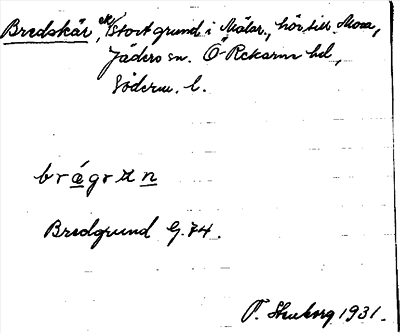 Bredskär, ett stort grund i Mälar., hör till Mora,
Jäders sn. Ö-Rekarne hd,
Söderm. l.
brágrun
Bredgrund G.74.
1931.